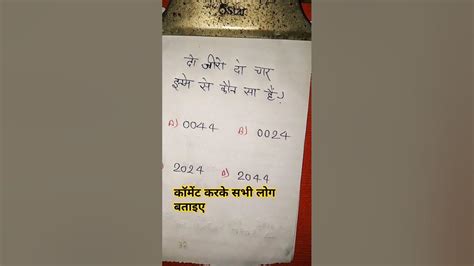 दो जीरो दो चार
इसमे से कौन सा हैं?
A) 0044 B) 0024
2024 D) 2044
कॉमेंट करके सभी लोग
बताइए